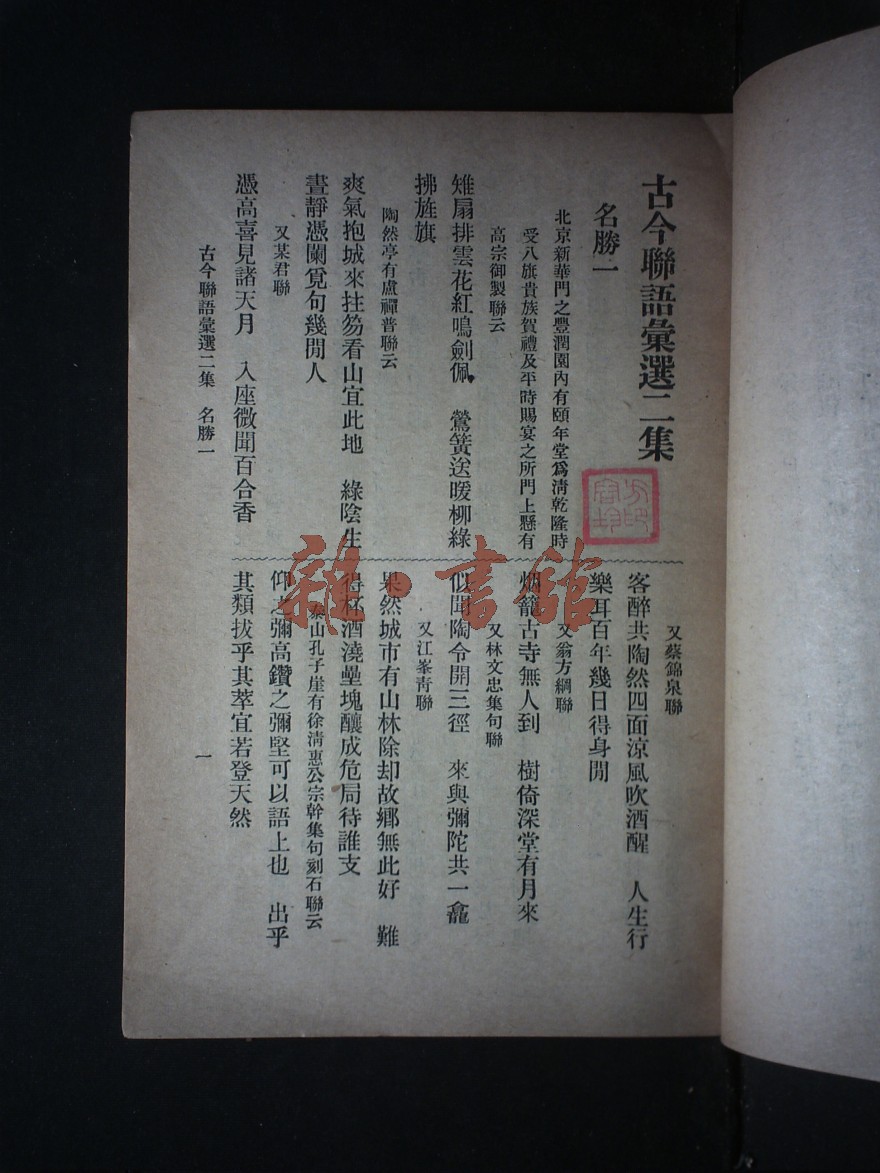 古今聯語彙選二集
名勝一
北京新華門之豐潤園內有頤年堂爲淸乾隆時
受八旗貴族賀禮及平時賜宴之所門上懸有
高宗御製聯云
雉扇排雲花紅鳴劍佩　鶯簧送暖柳綠
拂旌旗
陶然亭有盧禪普聯云
爽氣抱城來拄笏看山宜此地　綠陰生
晝靜憑闌覓句幾閒人
又某君聯
憑高喜見諸天月　入座微聞百合香
又蔡錦泉聯
客醉共陶然四面涼風吹酒醒　人生行
樂耳百年幾日得身閒
又翁方綱聯
烟籠古寺無人到　樹倚深堂有月來
又林文忠集句聯
似聞陶令開三徑　來與彌陀共一龕
又江峯靑聯
果然城市有山林除却故鄕無此好　難
得杯酒澆壘塊釀成危局待誰支
泰山孔子崖有徐淸惠公宗幹集句刻石聯云
仰之彌高鑽之彌堅可以語上也　出乎
其類拔乎其萃宜若登天然
古今聯語彙選二集　名勝一
一
雜·書館